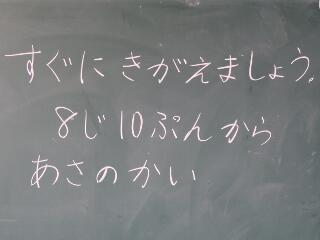 すぐに きがえましょう。
8じ10ぷんから
あさのかい